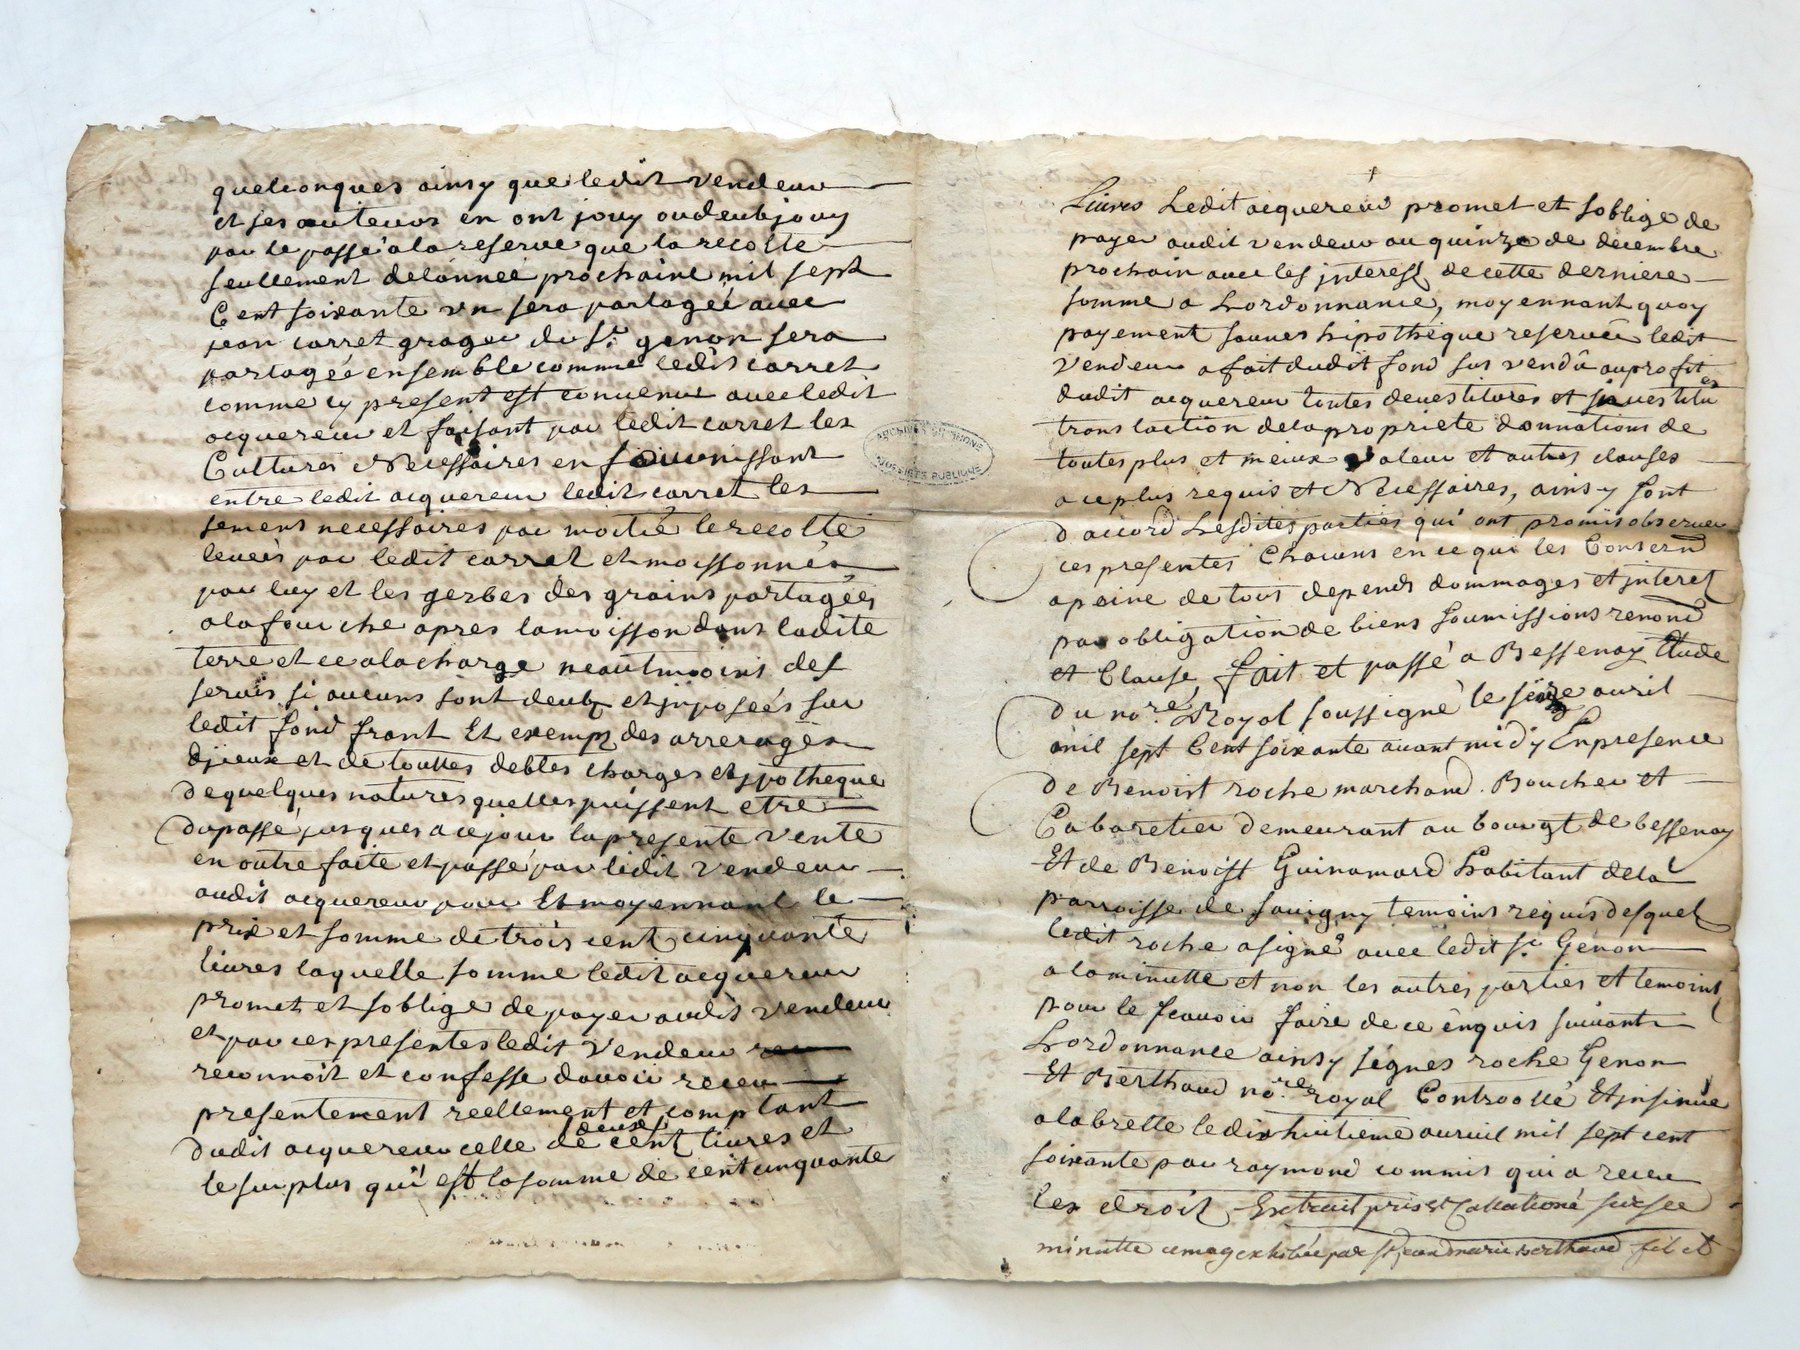 quelconques ainsy que ledit vendeur
et ses auteurs en ont jouy ou deub jouy
par le passé a la reserve que la recolte
seullement de lanneé prochaine mil sept
Cent soixante un sera partageé avec
jean carret granger du Sr. genon sera
partageé ensemble comme ledit carret
comme cy present est convenu avec ledit
acquereur et faisant par ledit carret les
Cultures Necessaires en fournissant
entre ledit acquereur ledit carret les
semens necessaires par moitié le recolte
leveés par ledit carret et moissonneés
par luy et les gerbes des grains partageés
a la fourche apres la moisson dans ladite
terre et ce a la charge neautmoins des
servis si aucuns sont deubz et jmposeés sur
ledit fond franc Et exempz des arrerages
djceux et de touttes debtes charges et ypotheque
de quelques natures quelles puissent etre
du passé jusques a ce jour la presente vente
en outre faite et passé par ledit vendeur
audit acquereur pour Et moyennant le
prix et somme de trois cent cinquante
livres laquelle somme ledit acquereur
promet et soblige de payer audit vendeur
et par ces presentes ledit vendeur
reconnoit et confesse davoir receu
presentement reellement et comptant
dudit acquereur celle de deux cent livres et
le surplus qui est la somme de cent cinquante
Livres Ledit acquereur promet et soblige de
payer audit vendeur au quinze de decembre
prochain avec les jnterest de cette derniere
somme a Lordonnance, moyennant quoy
payement sauves hipotheque reserveé ledit
Vendeur a fait dudit fond sus vendu au profit
dudit acquereur toutes devestitures et jnvestitures
translaction de la proprieté donnations de
toutes plus et mieux valeur et autres clauses
a ce plus requis et Necessaires, ainsy sont
daccord Lesdites parties qui ont promis observer
ces presentes Chacuns en ce qui les Consern
a peine de tous depends dommages et jnterest
par obligation de biens soumissions renond
et Clause, fait et passé a Bessenay Etude
du nore. Royal soussigné le seize avril
mil sept Cent soixante avant midy En presence
de Benoist roche marchand Boucher et
Cabaretier demeurant au bourgt de bessenay
Et de Benoist Guinamard habitant de la
parroisse de savigny temoins requis desquels
ledit roche a signé avec ledit sr. Genon
a la minutte et non les autres parties et temoins
pour le scavoir faire de ce enquis suivant
Lordonnance ainsy signes roche Genon
Et Berthaud nore. royal Controollé Et jnsinué
a la brelle le dix huitieme avril mil sept cent
soixante par raymond commis qui a receu
les droit Extrait pris et Collationé sur sa
minutte a moy exhibée par Sr jean marie berthaud fil et
ARCHIVES DU RHONE
DOSSIERS PUBLIQUE